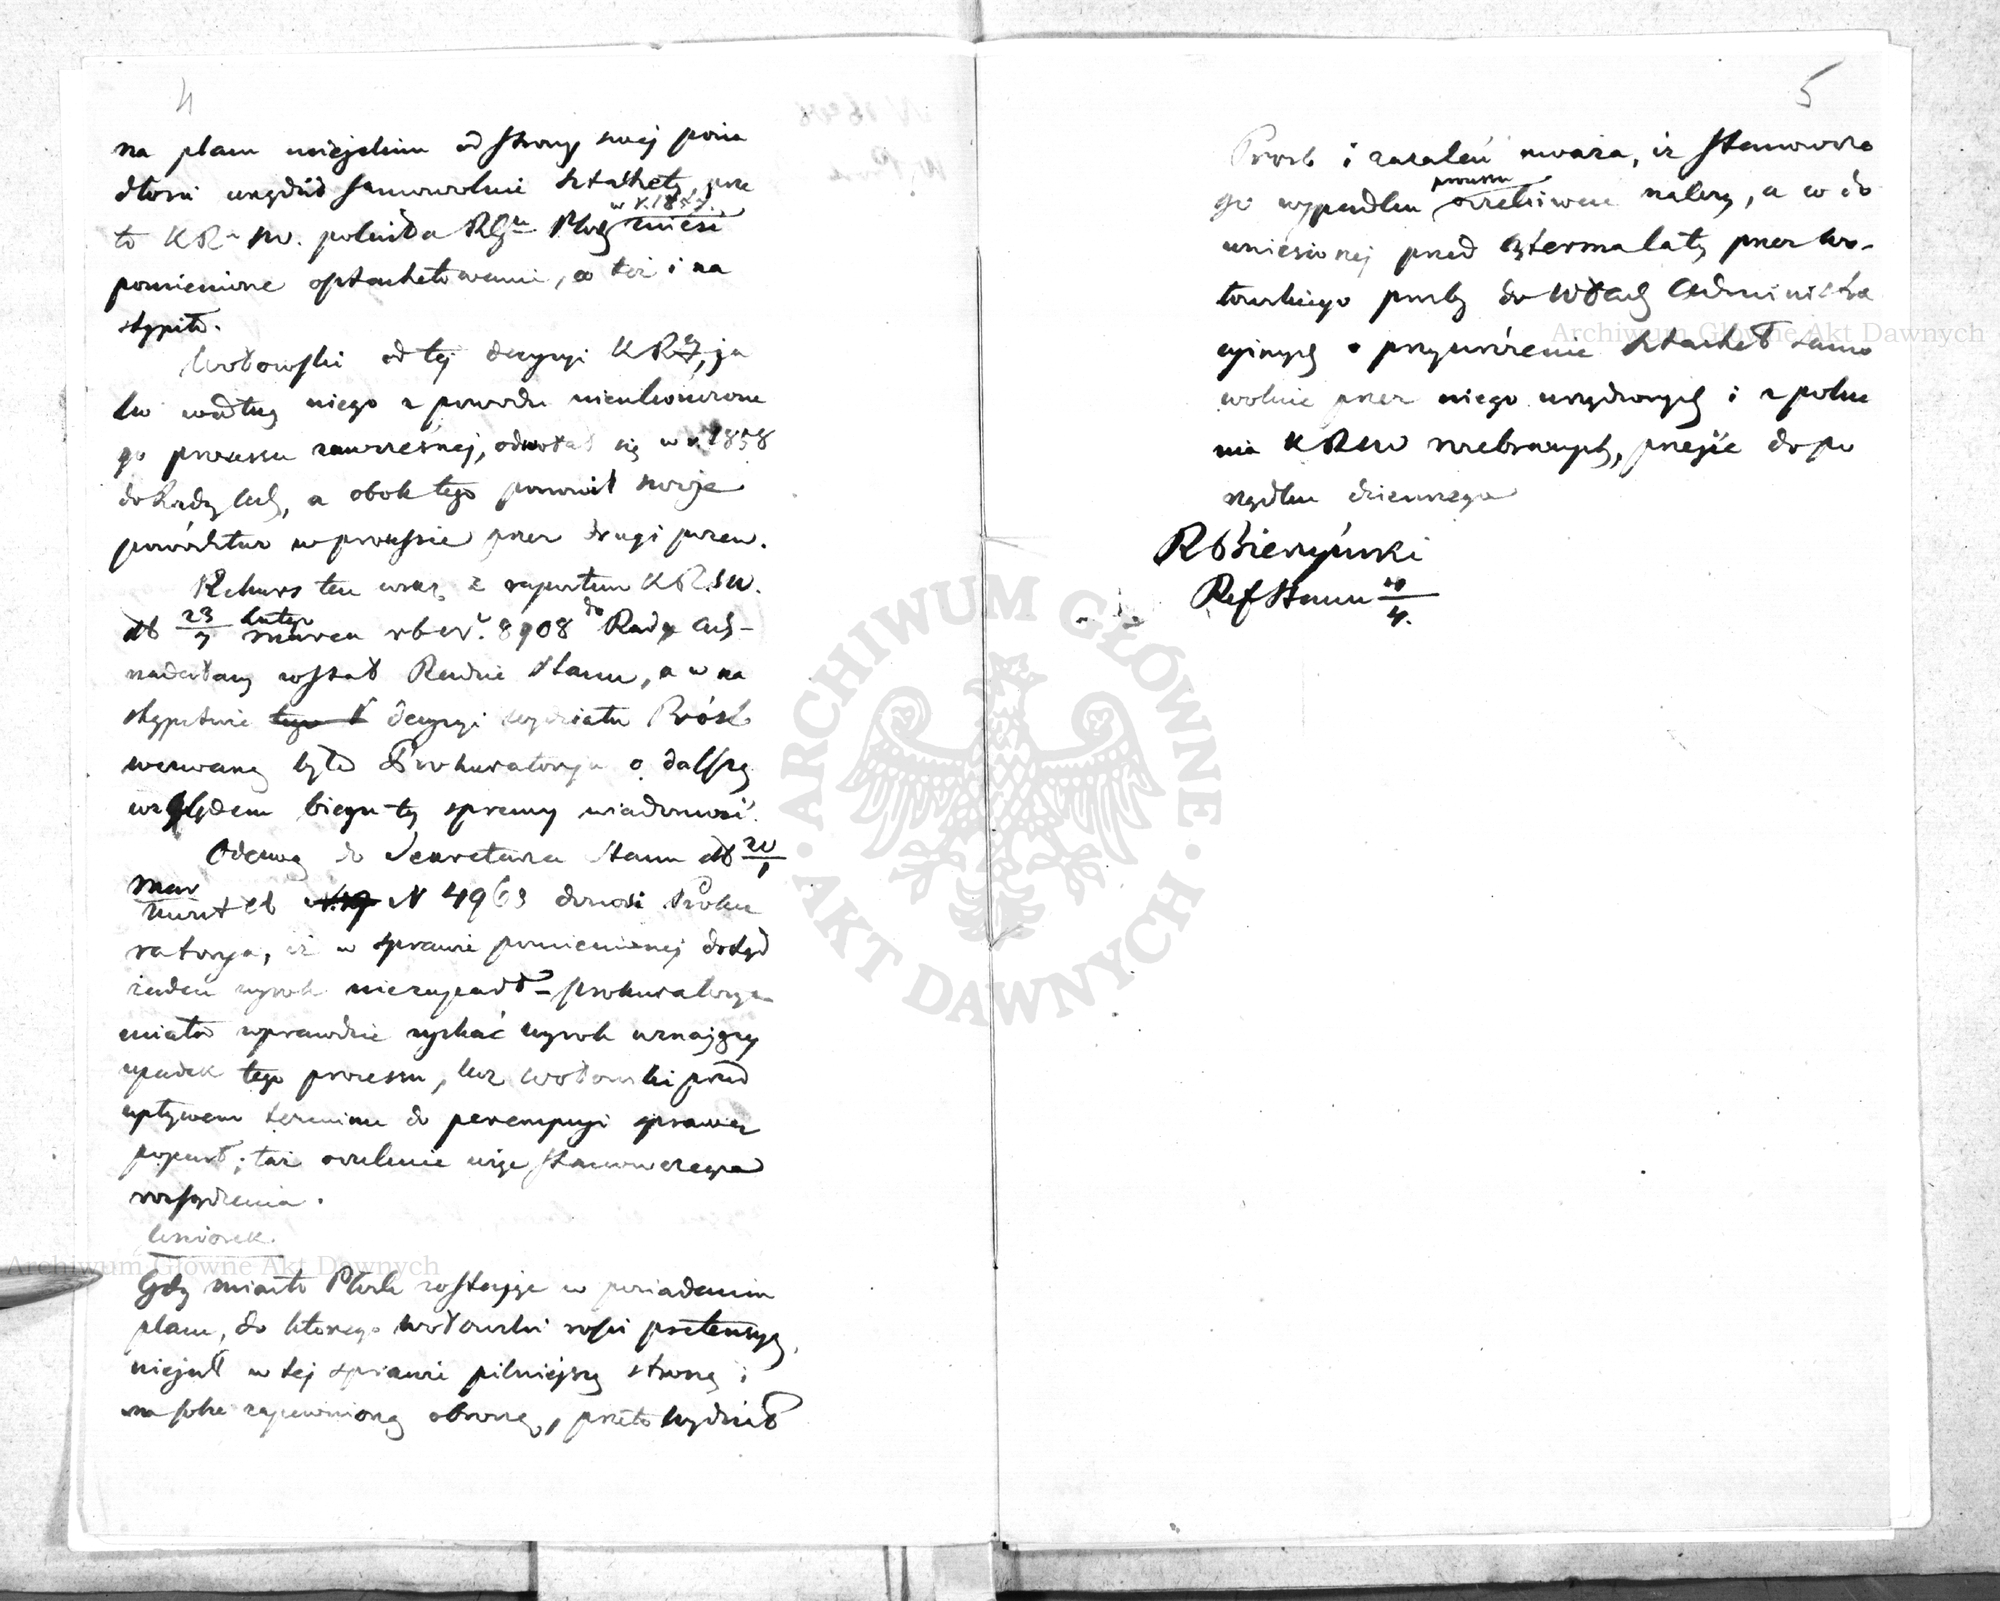 4
na placu miejskim od strony swej posia
dłości urządził samowolnie sztachety, prze
w r. 1857.
to KRz. Sw. poleciła RGu Płoc. znieść
pomienione osztachetowanie, co też i na
stąpiło.
Wołowski od tej decyzyi KRz, ja
ko według niego z powodu nieukończone
go processu zawczesnej, odwołał się w r. 1858
do Rady Adm, a obok tego ponowił swoje
powództwo w processie przez drugi pozew.
Rekurs ten wraz z raportem KRSW.
dd 23/7 lutego marca rb Nr. 8908 do Rady Adm
nadesłany został Radzie Stanu, a w na
stępstwie decyzyi wydziału Próśb
wezwaną była Prokuratorya o dalszą
względem biegu tej sprawy wiadomość.
Odezwą do Sekretarza Stanu dd 20/1
mar
rb N 4963 donosi Proku
ratorya, iż w sprawie pomienionej dotąd
żaden wyrok nie zapadł – prokuratorya
miała wprawdzie uzyskać wyrok uznający
upadek tego processu, lecz Wołowski przed
upływem terminu do perempcyi sprawę
poparł; taż oczekuje więc stanowczego
rozsądzenia.
Wniosek.
Gdy miasto Płock zostając w posiadaniu
placu, do którego Wołowski rości pretensyą,
nie jest w tej sprawie pilniejszą stroną i
ma sobie zapewnioną obronę, przeto wydział
5
Próśb i zażaleń uważa, iż stanowcze
processu
go wypadku oczekiwać należy, a co do
wniesionej przed czterma laty przez Wo-
łowskiego prośby do Władz Administra
cyjnych o przywrócenie sztachet samo
wolnie przez niego urządzonych i z polece
nia KRSW rozebranych, przejść do po
rządku dziennego
RWierzyński
Ref Stanu 10/4.
ARCHIWUM GŁÓWNE AKT DAWNYCH
Archiwum Główne Akt Dawnych
Archiwum Główne Akt Dawnych